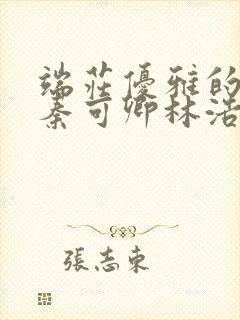 端莊優雅的
秦可卿林浩
張志東